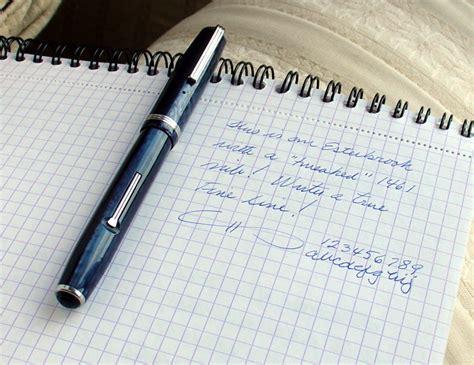 This is an Esterbrook
with a "tweaked" 1461
nib! Writes a fine
fine line!
123456789
abcdefghij